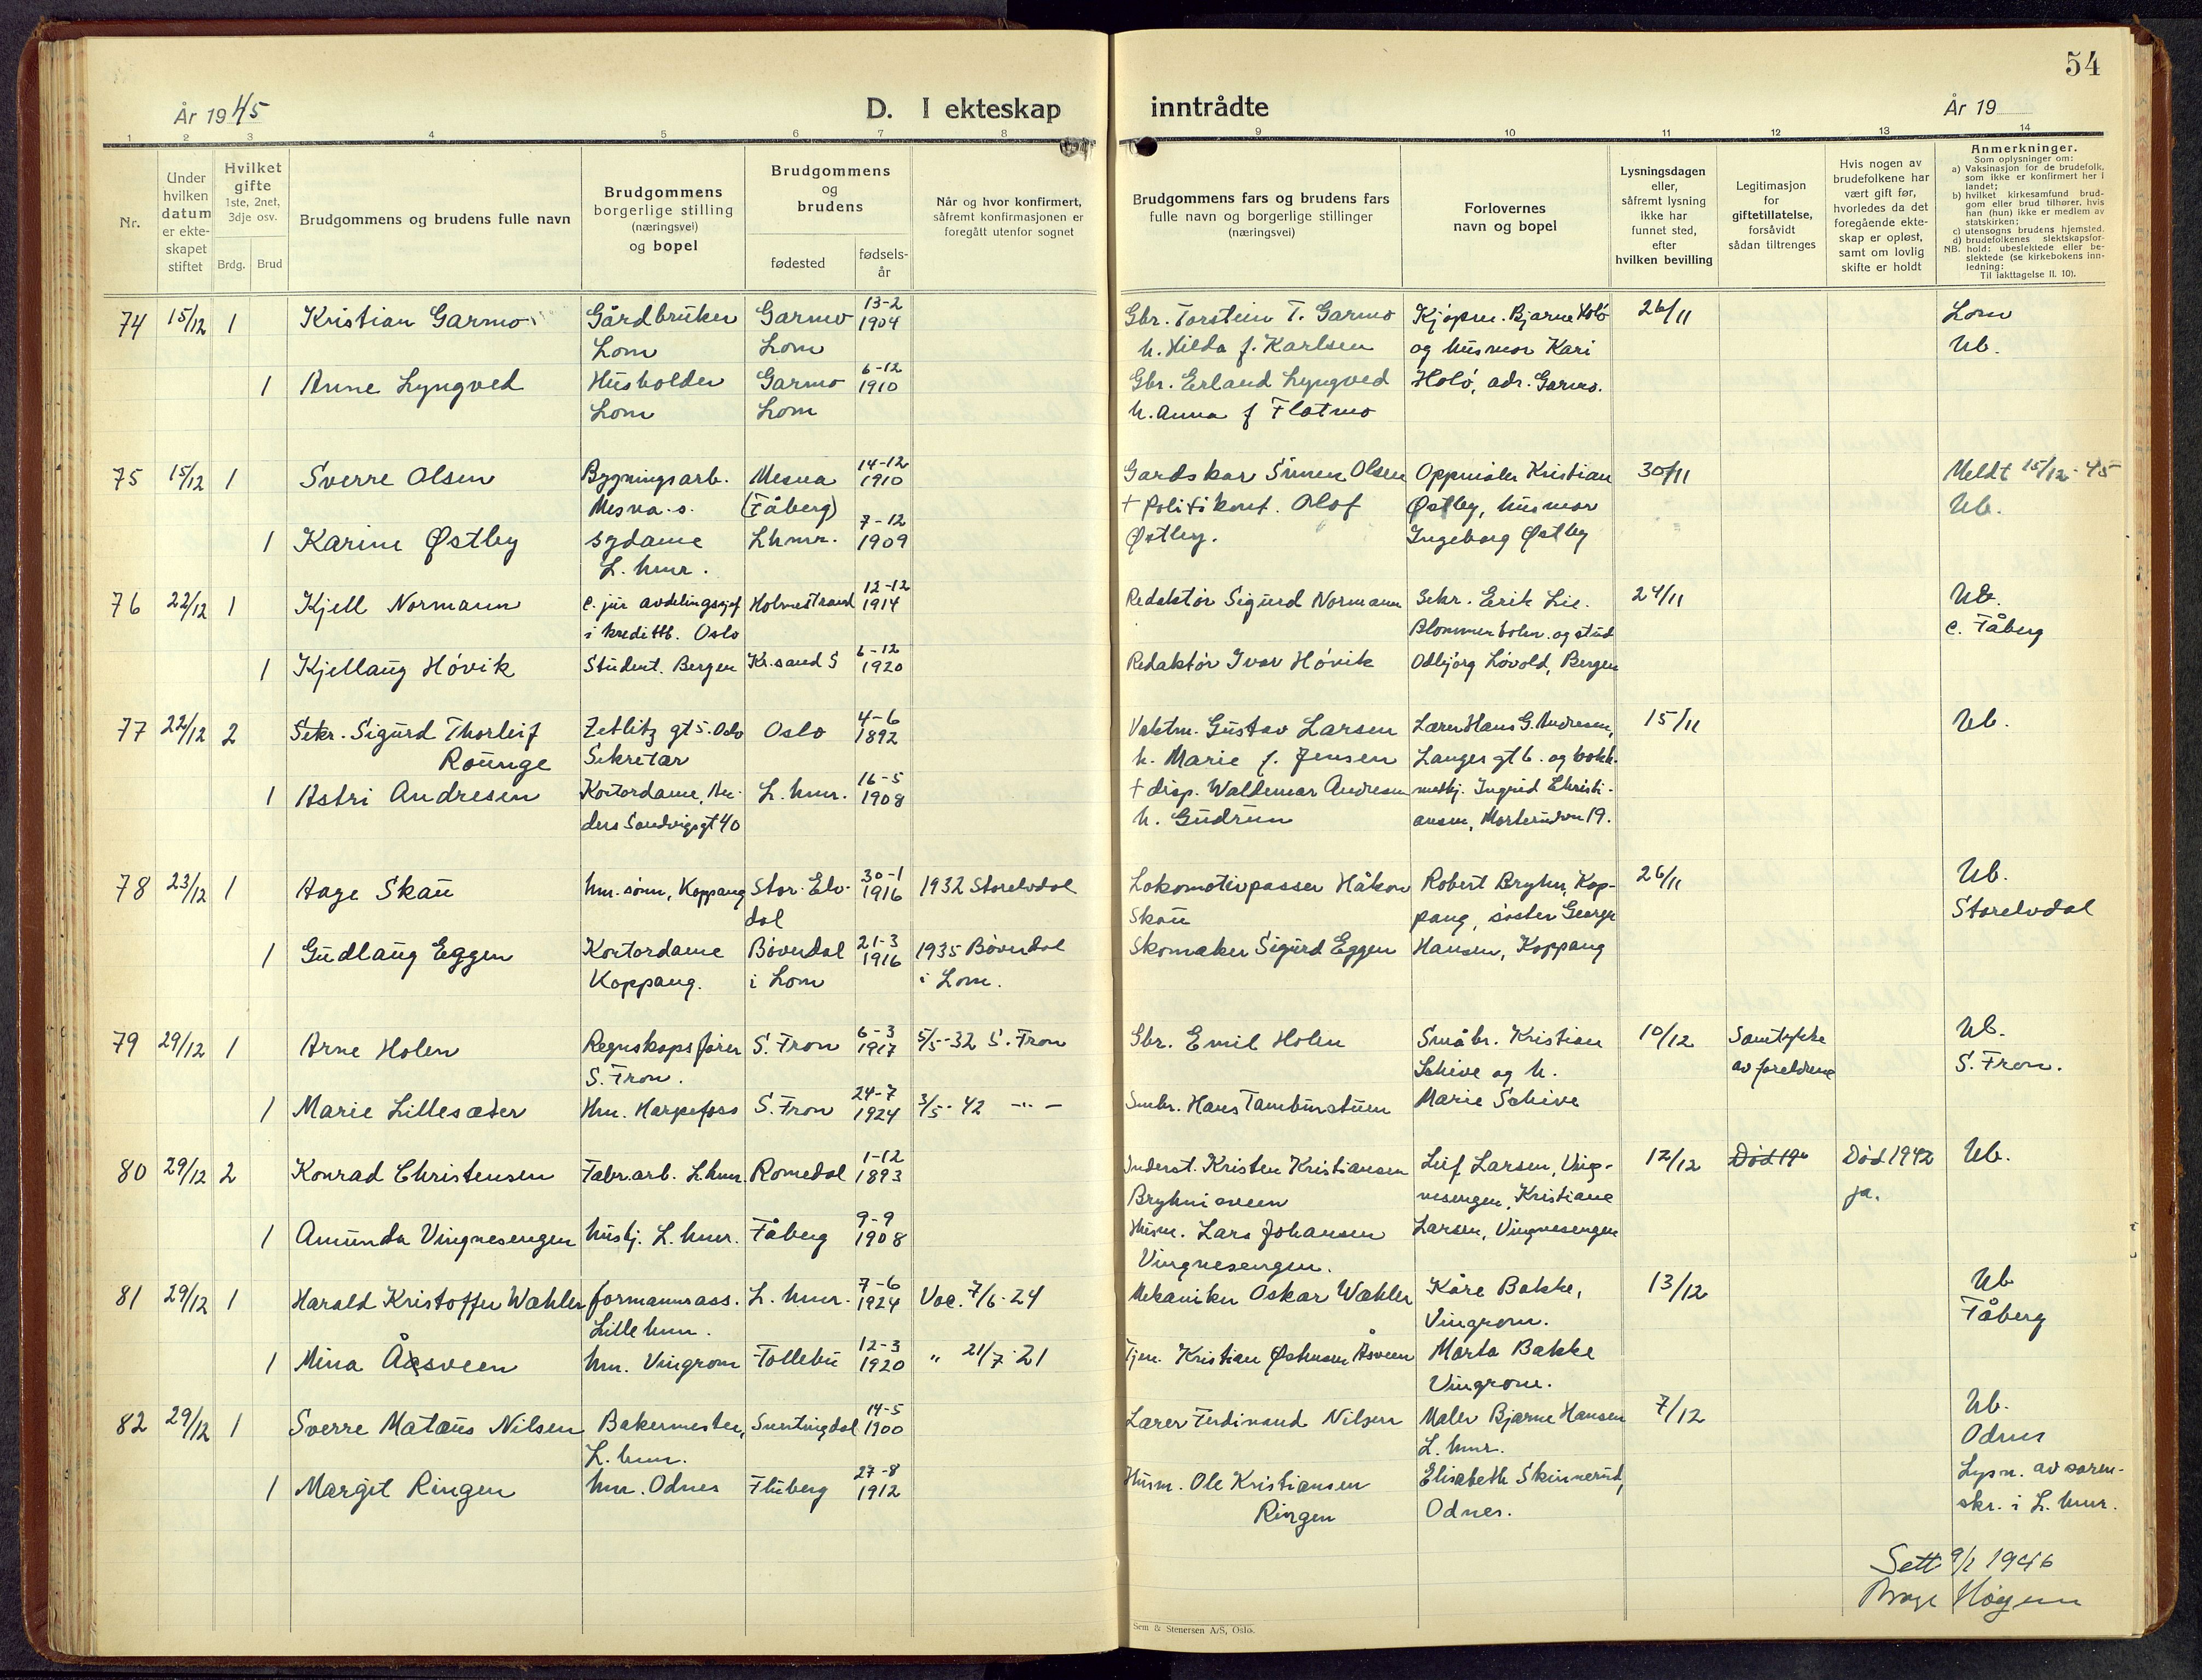 54
År 1945
D. I ekteskap inntrådte
År 19
1 2 3 4 5 6 7 8 9 10 11 12 13 14
Nr.
Under hvilken datum er ekteskapet stiftet
Hvilket gifte 1ste, 2net, 3dje osv.
Brdg. Brud
Brudgommens og brudens fulle navn
Brudgommens borgerlige stilling (næringsvei) og bopel
Brudgommens og brudens
fødested
fødselsår
Når og hvor konfirmert, såfremt konfirmasjonen er foregått utenfor sognet
Brudgommens fars og brudens fars fulle navn og borgerlige stillinger (næringsvei)
Forlovernes navn og bopel
Lysningsdagen eller, såfremt lysning ikke har funnet sted, efter hvilken bevilling
Legitimasjon for giftetillatelse, forsåvidt sådan tiltrenges
Hvis nogen av brudefolkene har vært gift før, hvorledes da det foregående ekteskap er opløst, samt om lovlig skifte er holdt
Anmerkninger.
Som oplysninger om:
a) Vaksinasjon for de brudefolk, som ikke er konfirmert her i landet;
b) hvilket kirkesamfund brudgom eller brud tilhører, hvis han (hun) ikke er medlem av statskirken;
c) utensogns brudens hjemsted.
d) brudefolkenes slektskapsforhold: ubeslektede eller beslektede (se kirkebokens innledning:
NB. Til iakttagelse II. 10).
74 15/12 1 Kristian Garmo Gårdbruker Garmo 13-2 1904 Gbr. Torstein T. Garmo Kjøpm. Bjarne Holø 26/11 Lom
Lom Lom h. Hilda f. Karlsen og husmor Kari Ub.
1 Anne Lyngved Husholder Garmo 6-12 1910 Gbr. Erland Lyngved Holø, adr. Garmo.
Lom Lom h. Anna f Flatmo
75 15/12 1 Sverre Olsen Bygningsarb. Mesna 14-12 1910 Gardskar Simen Olsen Oppmåler Kristian 30/11 Meldt 15/12-45
Mesna.s. (Fåberg) + Politikonst. Olof Østby, husmor Ub.
1 Karine Østby sydame Lhmr. 7-12 1909 Østby. Ingeborg Østby
L.hmr.
76 22/12 1 Kjell Normann c. jur avdelingssjef Holmestrand 12-12 1914 Redaktør Sigurd Normann Sekr. Erik Lie. 24/11 Ub.
i kredittb. Oslo Blommenholm. og stud c. Fåberg
1 Kjellaug Høvik Student. Bergen Kr.sand S 6-12 1920 Redaktør Ivar Høvik Odbjørg Løvold, Bergen
77 22/12 2 Sekr. Sigurd Thorleif Zetlitz gt 5. Oslo Oslo 4-6 1892 Vaktm. Gustav Larsen Lærer Hans G. Andresen, 15/11 Ub.
Rounge Sekretær h. Marie f. Jensen Langes gt 6. og bokh.
1 Astri Andresen Kontordame, An- L.hmr. 16-5 1908 + disp. Waldemar Andresen Ingrid Christi-
ders Sandvigsgt 40 h. Gudrun ansen, 19.
78 23/12 1 Aage Skau hm. sønn, Koppang Stor-Elv- 30-1 1916 1932 Storelvdal Lokomotivpasser Håkon Robert Bryhn, Kop- 26/11 Ub.
dal Skau pang, søster George Storelvdal
1 Gudlaug Eggen Kontordame Bøverdal 21-3 1916 1935 Bøverdal Skomaker Sigurd Eggen Hansen, Koppang
Koppang. i Lom i Lom.
79 29/12 1 Arne Holen Regnskapsfører S. Fron 6-3 1917 5/5-32 S. Fron Gbr. Emil Holen Småbr. Kristian 10/12 Samtykke Ub.
S. Fron. Schive og h. av foreldrene S. Fron.
1 Marie Lillesæter Hm. Harpefoss S. Fron 24-7 1924 3/5-42 -"- Smbr. Hans Tamburstuen Marie Schive
80 29/12 2 Konrad Christensen Fabr.arb. L.hmr. Romedal 1-12 1893 Inderst. Kristen Kristiansen Leif Larsen, Ving- 12/12 Død 19 Død 1942 Ub.
Bryhnisveen nesengen, Kristiane ja.
1 Amunda Vingnesengen husbj. L.hmr. Fåberg 9-9 1908 Husm. Lars Johansen Larsen, Vingnesengen
Vingnesengen.
81 29/12 1 Harald Kristoffer Wahler formannsass. L.hmr. 7-6 1924 Vac. 7/6-24 Mekaniker Oskar Wahler Kåre Bakke, 13/12 Ub
Lillehmr. Vingrom. Fåberg
1 Mina Åsveen hm. Vingrom Follebu 12-3 1920 " 21/7-21 Tjen. Kristian Johnsen Åsveen Marta Bakke
Vingrom.
82 29/12 1 Sverre Matæus Nilsen Bakermester, Snertingdal 14-5 1900 Lærer Ferdinand Nilsen Maler Bjarne Hansen 7/12 Ub.
L.hmr. L.hmr. Odnes
1 Margit Ringen hm. Odnes Fluberg 27-8 1912 Husm. Ole Kristiansen Elisabeth Skinnerud, Lysn. av soren-
Ringen Odnes. skr. i L.hmr.
Sett 9/1 1946
Sem & Stenersen A/S, Oslo.